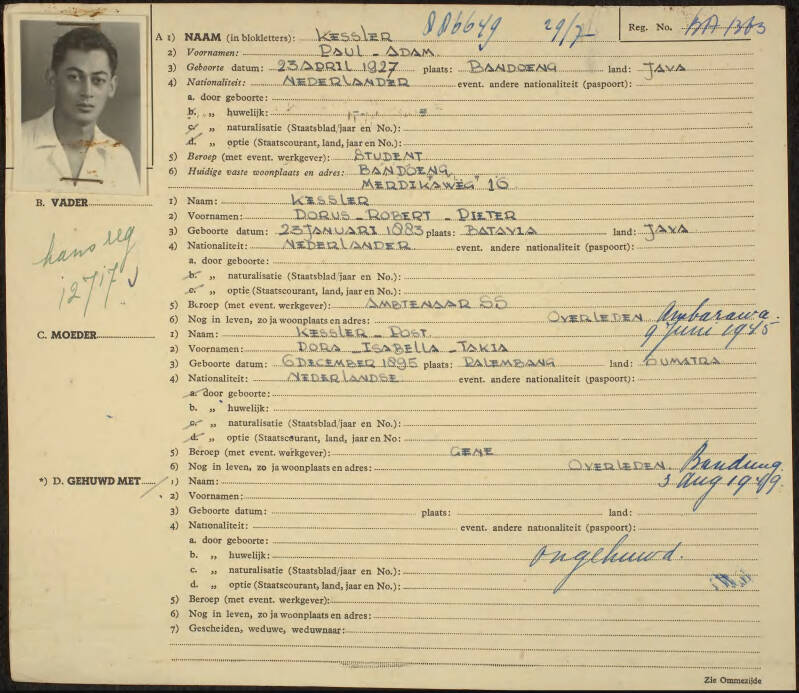 RR6649 29/7- Reg. No. RA 1363
A 1) NAAM (in blokletters): KESSLER
2) Voornamen: PAUL - ADAM
3) Geboorte datum: 23 APRIL 1927 plaats: BANDOENG land: JAVA
4) Nationaliteit: NEDERLANDER event. andere nationaliteit (paspoort):
a. door geboorte:
b. „ huwelijk:
c. „ naturalisatie (Staatsblad/jaar en No.):
d. „ optie (Staatscourant, land, jaar en No.):
5) Beroep (met event. werkgever): STUDENT
6) Huidige vaste woonplaats en adres: BANDOENG
MERDIKAWEG 16
B. VADER 1) Naam: KESSLER
2) Voornamen: DORUS - ROBERT - PIETER
3) Geboorte datum: 23 JANUARI 1883 plaats: BATAVIA land: JAVA
4) Nationaliteit: NEDERLANDER event. andere nationaliteit (paspoort):
hans reg
12717
a. door geboorte:
b. „ naturalisatie (Staatsblad/jaar en No.):
c. „ optie (Staatscourant, land, jaar en No.):
5) Beroep (met event. werkgever): AMBTENAAR SS
6) Nog in leven, zo ja woonplaats en adres: OVERLEDEN Ambarawa.
9 Juni 1945
C. MOEDER 1) Naam: KESSLER - POST.
2) Voornamen: DORA - ISABELLA - TAKIA
3) Geboorte datum: 6 DECEMBER 1895 plaats: PALEMBANG land: SUMATRA
4) Nationaliteit: NEDERLANDSE event. andere nationaliteit (paspoort):
a. door geboorte:
b. „ huwelijk:
c. „ naturalisatie (Staatsblad/jaar en No.):
d. „ optie (Staatscourant, land, jaar en No.:
5) Beroep (met event. werkgever): GENE
6) Nog in leven, zo ja woonplaats en adres: OVERLEDEN. Bandung.
3 Aug 1949.
*) D. GEHUWD MET 1) Naam:
2) Voornamen:
3) Geboorte datum: plaats: land:
4) Nationaliteit: event. andere nationaliteit (paspoort):
a. door geboorte:
b. „ huwelijk: ongehuwd.
c. „ naturalisatie (Staatsblad/jaar en No.):
d. „ optie (Staatscourant, land, jaar en No.):
5) Beroep (met event. werkgever):
6) Nog in leven, zo ja woonplaats en adres:
7) Gescheiden, weduwe, weduwnaar:
Zie Ommezijde